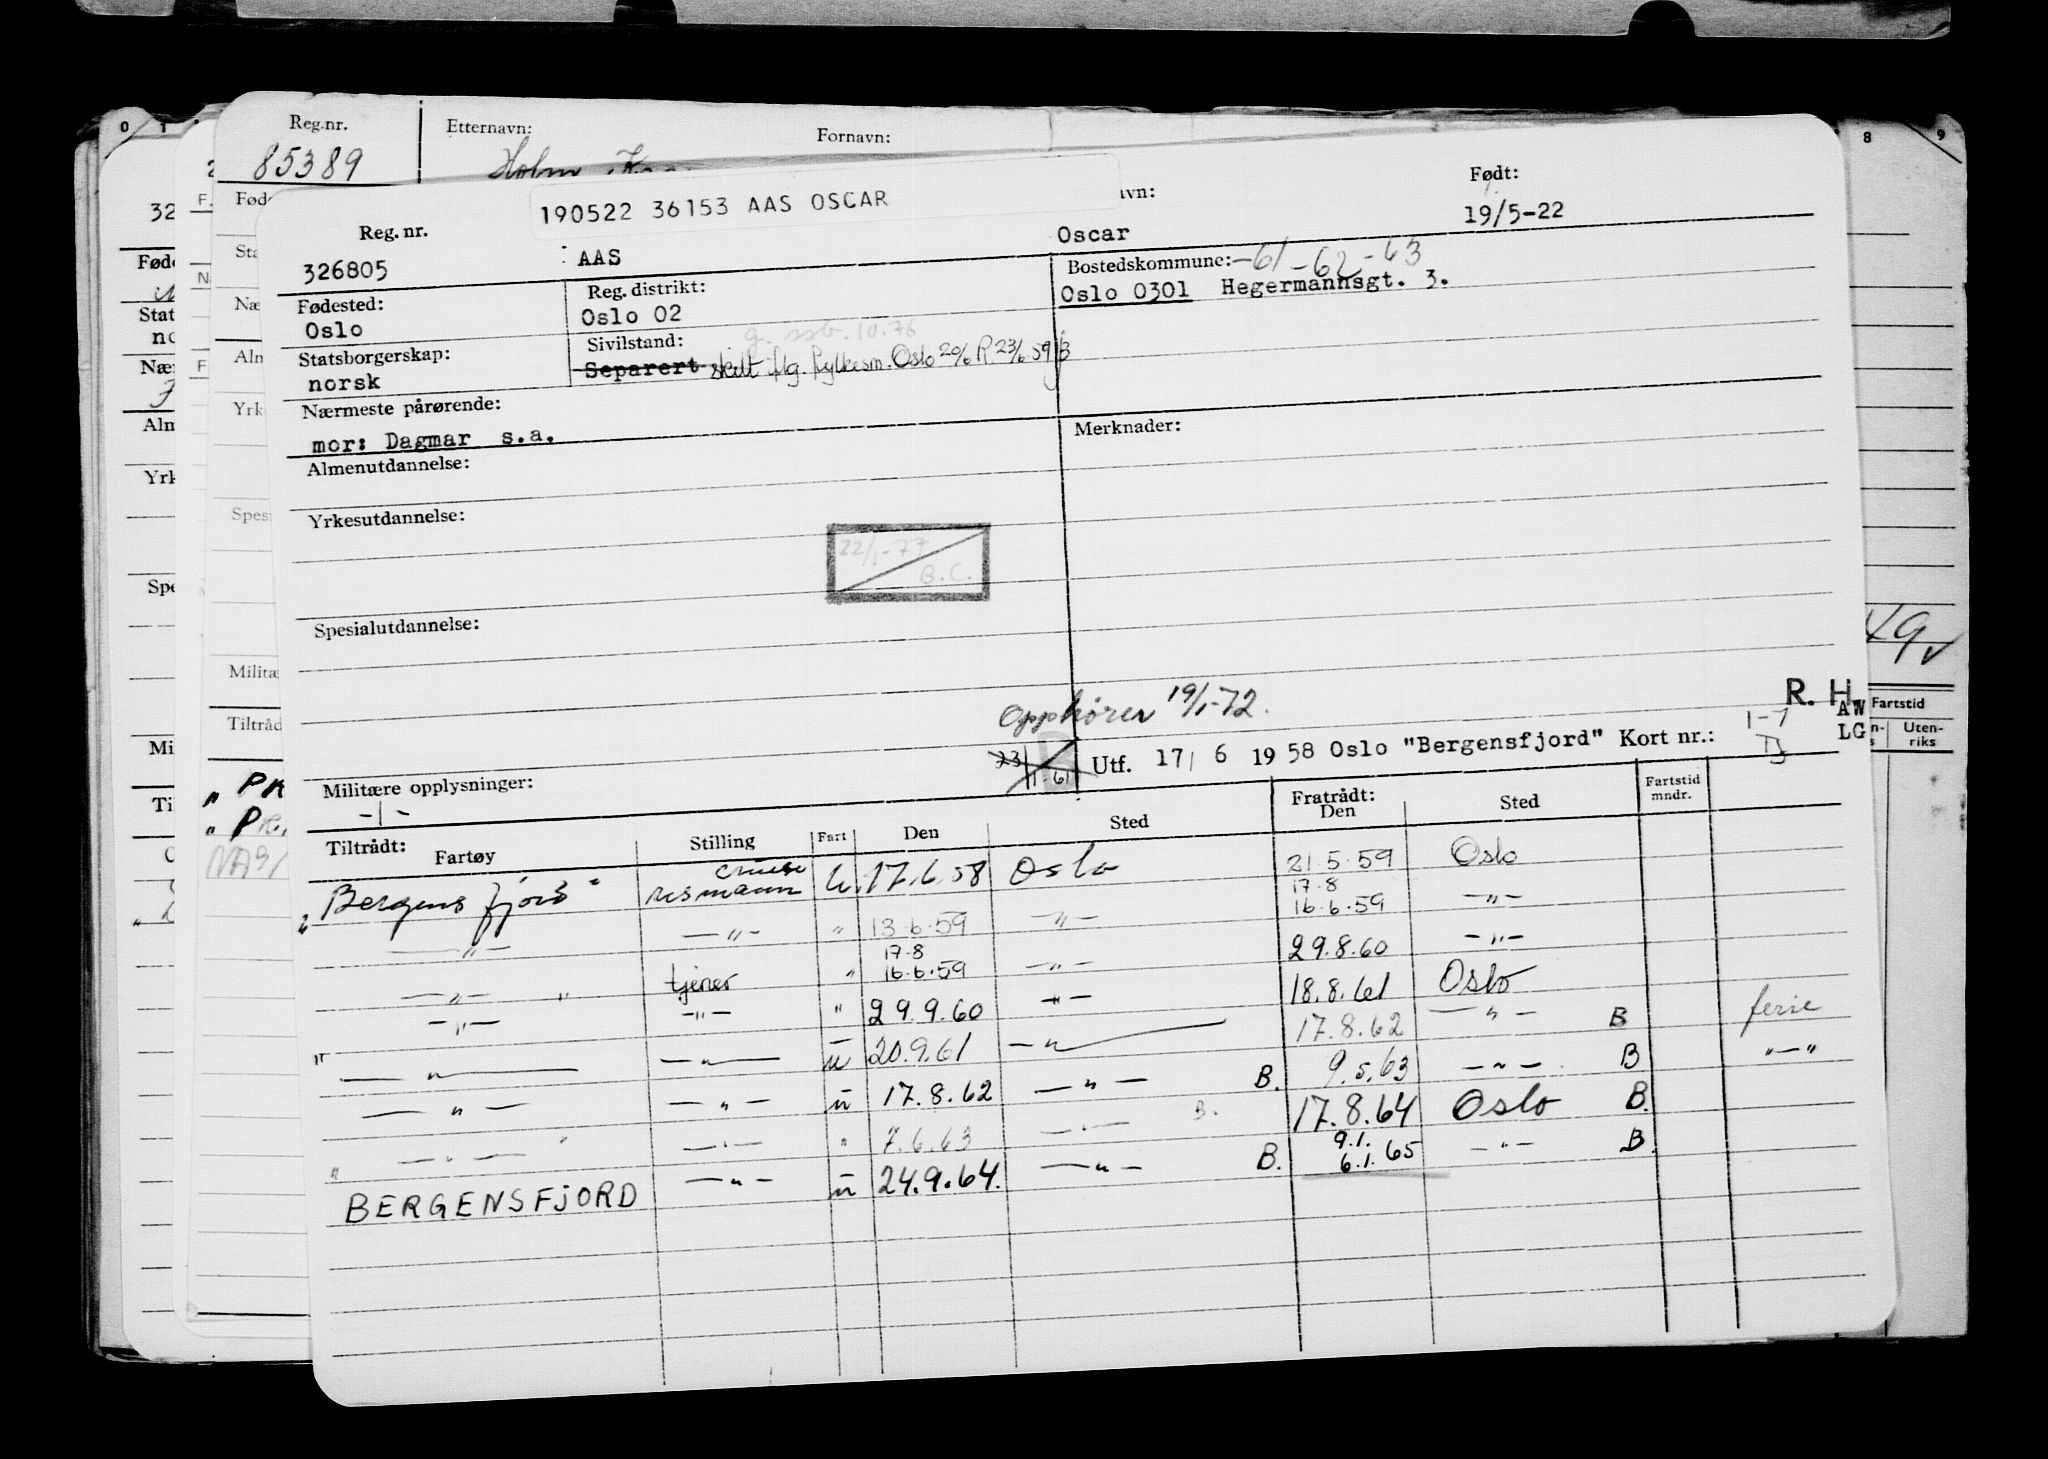 0 1
8 9
Reg.nr. Etternavn: Fornavn:
85389 Holm
190522 36153 AAS OSCAR
Født:
Reg. nr. AAS Oscar 19/5-22
326805
Bostedskommune: -61-62-63
Fødested: Reg. distrikt: Oslo 0301 Hegermannsgt. 3.
Oslo Oslo 02
g. ssb. 10.76
Statsborgerskap: Sivilstand:
norsk Separert skilt iflg. fylkesm. Oslo 20/6 R 23/6-59
Nærmeste pårørende:
mor: Dagmar s.a. Merknader:
Almenutdannelse:
Yrkesutdannelse:
22/1-77
B.C.
Spesialutdannelse:
49
Opphører 19/1-72.
R. H.
AW
LG
Fartstid
Uten-
riks
23/1-61 Utf. 17/ 6 1958 Oslo "Bergensfjord" Kort nr.: 1-7
Militære opplysninger:
-1-
Tiltrådt: Fratrådt: Fartstid mndr.
Fartøy Stilling Fart Den Sted Den Sted
"Bergensfjord" cruise resmann u. 17.6.58 Oslo 21.5.59 Oslo
—"— —"— " 13.6.59 —"— 17.8 16.6.59 —"—
—"— tjener " 17.8 16.6.59 —"— 29.8.60 —"—
—"— —"— " 29.9.60 —"— 18.8.61 Oslo
—"— —"— u 20.9.61 —"— 17.8.62 —"— B ferie
—"— —"— u 17.8.62 —"— B. 9.5.63 —"— B "—"
—"— —"— " 7.6.63 —"— B. 17.8.64 Oslo B.
BERGENSFJORD —"— u 24.9.64. —"— B. 9.1. 6.1.65 —"— B.